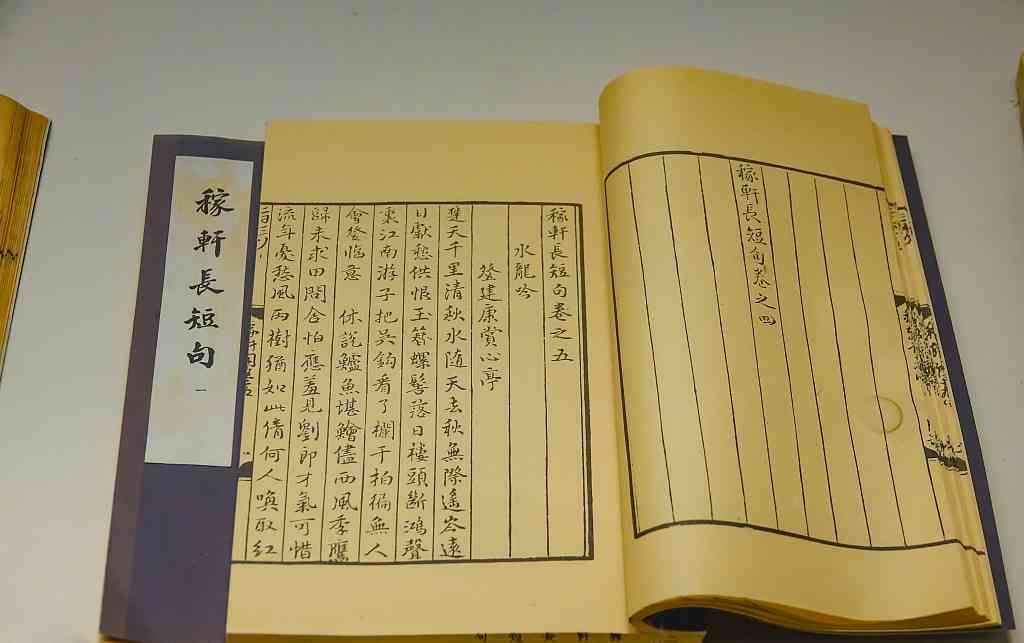 稼軒長短句卷之四
稼軒長短句卷之五
水龍吟
登建康賞心亭
楚天千里清秋水隨天去秋無際遙岑遠
目獻愁供恨玉簪螺髻落日樓頭斷鴻聲
裏江南游子把吳鉤看了欄干拍徧無人
會登臨意 休說鱸魚堪鱠儘西風季鷹
歸未求田問舍怕應羞見劉郎才氣可惜
流年憂愁風雨樹猶如此倩何人喚取紅
稼軒長短句 一